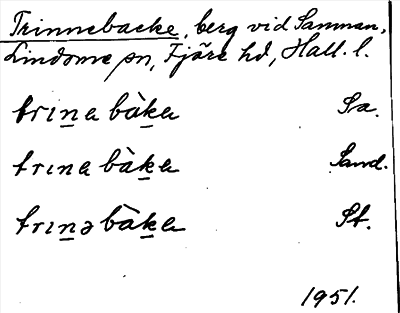 Trinnebacke, berg vid Samman,
Lindome sn, Fjäre hd, Hall. l.
trɪn̲a bàk̲a Sa.
trɪna bàk̲a Sand.
trɪn̲ə bàk̲a St.
1951.